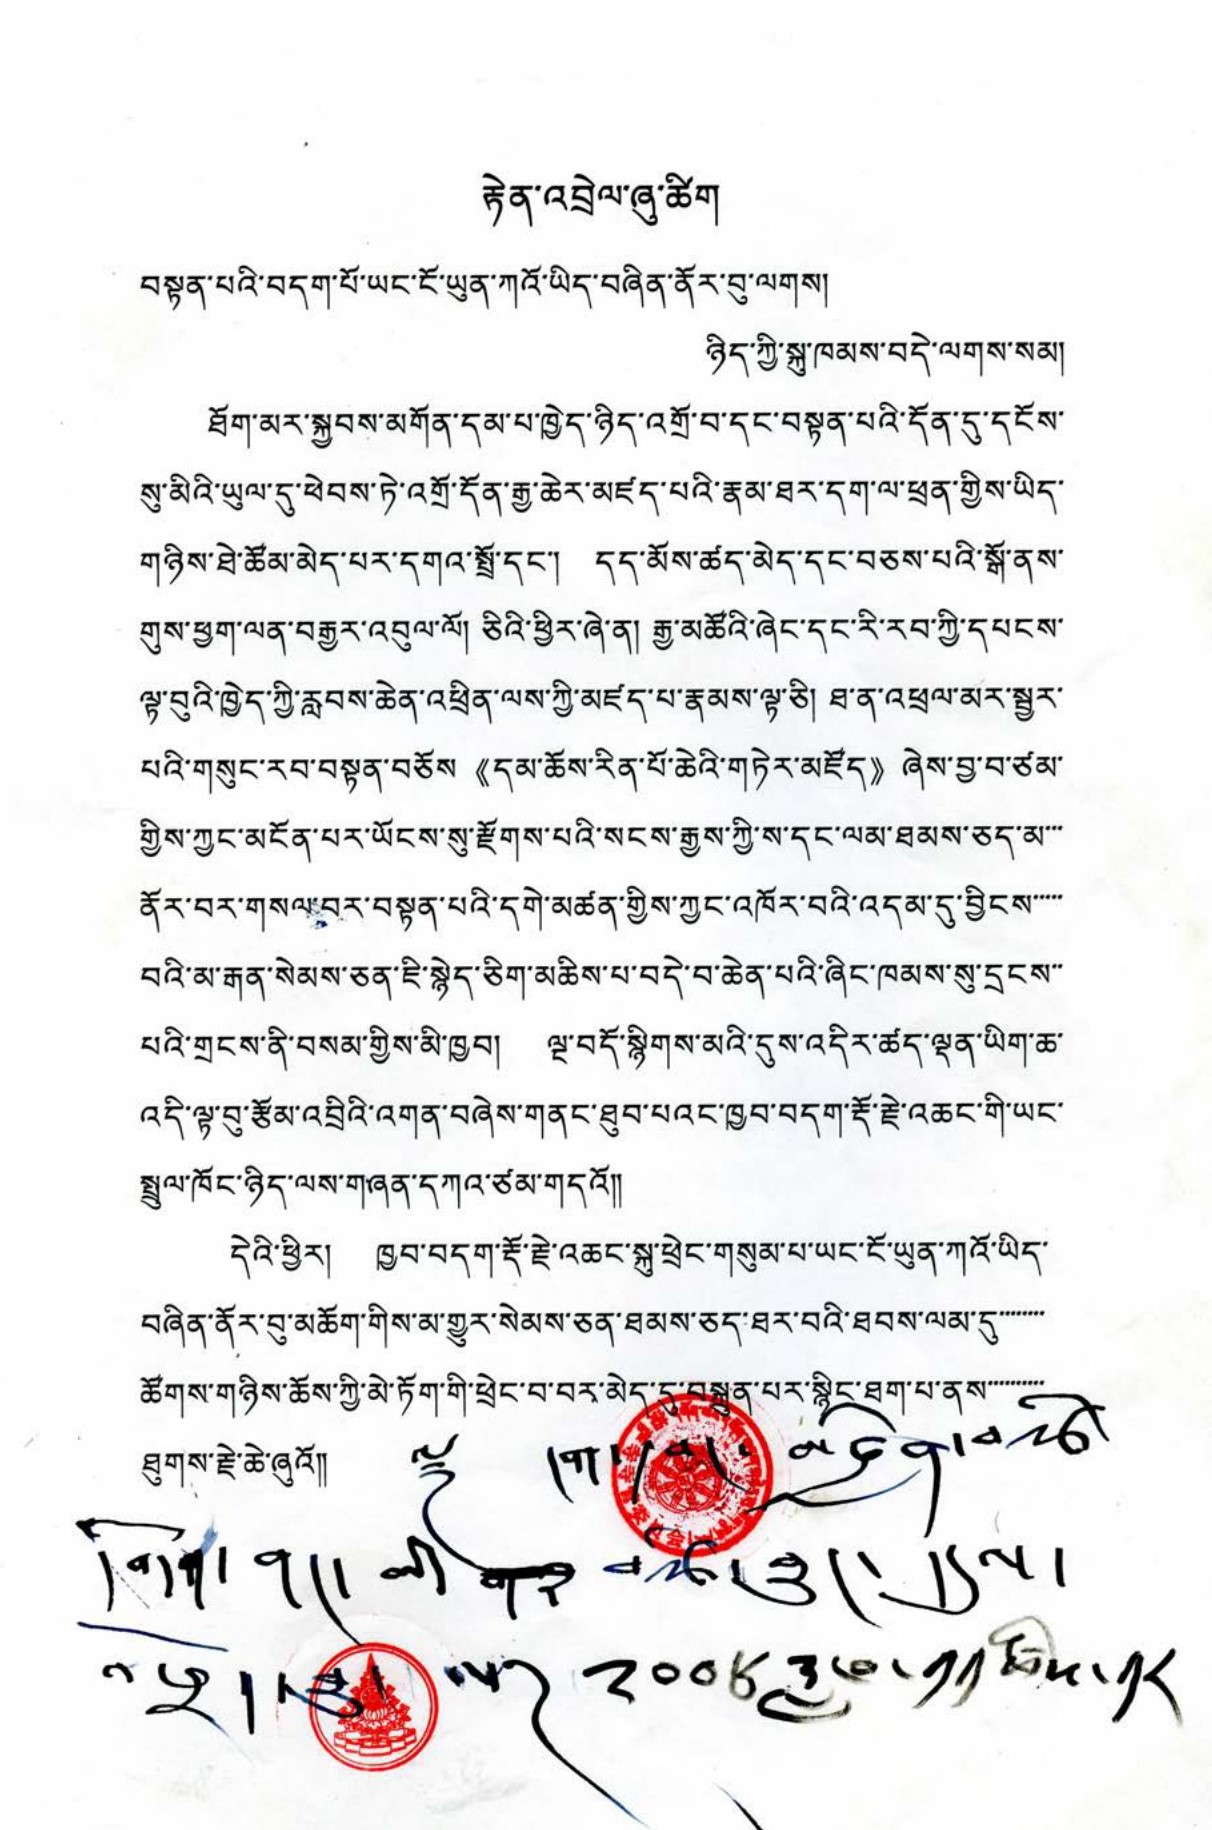 རྟེན་འབྲེལ་ཞུ་ཚིག
བསྟན་པའི་བདག་པོ་ཡང་ངོ་ཡུན་ཀའོ་ཡིད་བཞིན་ནོར་བུ་ལགས།
ཉིད་ཀྱི་སྐུ་ཁམས་བདེ་ལགས་སམ།
ཐོག་མར་སྐྱབས་མགོན་དམ་པ་ཁྱེད་ཉིད་འགྲོ་བ་དང་བསྟན་པའི་དོན་དུ་དངོས་
སུ་མིའི་ཡུལ་དུ་ཕེབས་ཏེ་འགྲོ་དོན་རྒྱ་ཆེར་མཛད་པའི་རྣམ་ཐར་དག་ལ་ཕྲན་གྱིས་ཡིད་
གཉིས་ཐེ་ཚོམ་མེད་པར་དགའ་སྤྲོ་དང་། དད་མོས་ཚད་མེད་དང་བཅས་པའི་སྒོ་ནས་
གུས་ཕྱག་ལན་བརྒྱར་འབུལ་ལོ། ཅིའི་ཕྱིར་ཞེ་ན། རྒྱ་མཚོའི་ཞེང་དང་རི་རབ་ཀྱི་དཔངས་
ལྟ་བུའི་ཁྱེད་ཀྱི་རླབས་ཆེན་འཕྲིན་ལས་ཀྱི་མཛད་པ་རྣམས་ལྟ་ཅི། ཐ་ན་འཕྲལ་མར་སྦྱར་
པའི་གསུང་རབ་བསྟན་བཅོས 《དམ་ཆོས་རིན་པོ་ཆེའི་གཏེར་མཛོད》 ཞེས་བྱ་བ་ཙམ་
གྱིས་ཀྱང་མངོན་པར་ཡོངས་སུ་རྫོགས་པའི་སངས་རྒྱས་ཀྱི་ས་དང་ལམ་ཐམས་ཅད་མ་
ནོར་བར་གསལ་བར་བསྟན་པའི་དགེ་མཚན་གྱིས་ཀྱང་འཁོར་བའི་འདམ་དུ་བྱིངས་
བའི་མ་རྒན་སེམས་ཅན་ཇི་སྙེད་ཅིག་མཆིས་པ་བདེ་བ་ཆེན་པའི་ཞིང་ཁམས་སུ་དྲངས་
པའི་གྲངས་ནི་བསམ་གྱིས་མི་ཁྱབ། ལྔ་བདོ་སྙིགས་མའི་དུས་འདིར་ཚད་ལྡན་ཡིག་ཆ་
འདི་ལྟ་བུ་རྩོམ་འབྲིའི་འགན་བཞེས་གནང་ཐུབ་པའང་ཁྱབ་བདག་རྡོ་རྗེ་འཆང་གི་ཡང་
སྤྲུལ་ཁོང་ཉིད་ལས་གཞན་དཀའ་ཙམ་གདའོ།།
དེའི་ཕྱིར། ཁྱབ་བདག་རྡོ་རྗེ་འཆང་སྐུ་ཕྲེང་གསུམ་པ་ཡང་ངོ་ཡུན་ཀའོ་ཡིད་
བཞིན་ནོར་བུ་མཆོག་གིས་མ་གྱུར་སེམས་ཅན་ཐམས་ཅད་ཐར་བའི་ཐབས་ལམ་དུ་
ཚོགས་གཉིས་ཆོས་ཀྱི་མེ་ཏོག་གི་ཕྲེང་བ་བར་མེད་དུ་བསྒྲུན་པར་སྙིང་ཐག་པ་ནས་
ཐུགས་རྗེ་ཆེ་ཞུའོ།།